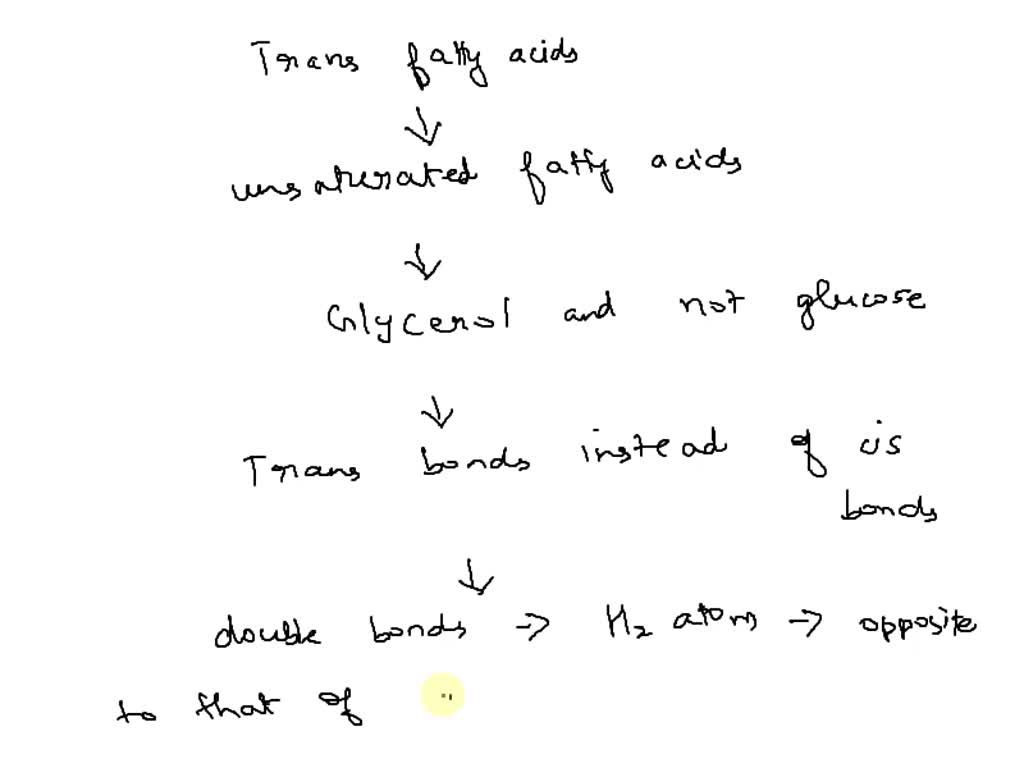 Trans fatty acids
↓
unsaturated fatty acids
↓
Glycerol and not glucose
↓
Trans bonds instead of cis
bonds
↓
double bonds → H₂ atoms → opposite
to that of